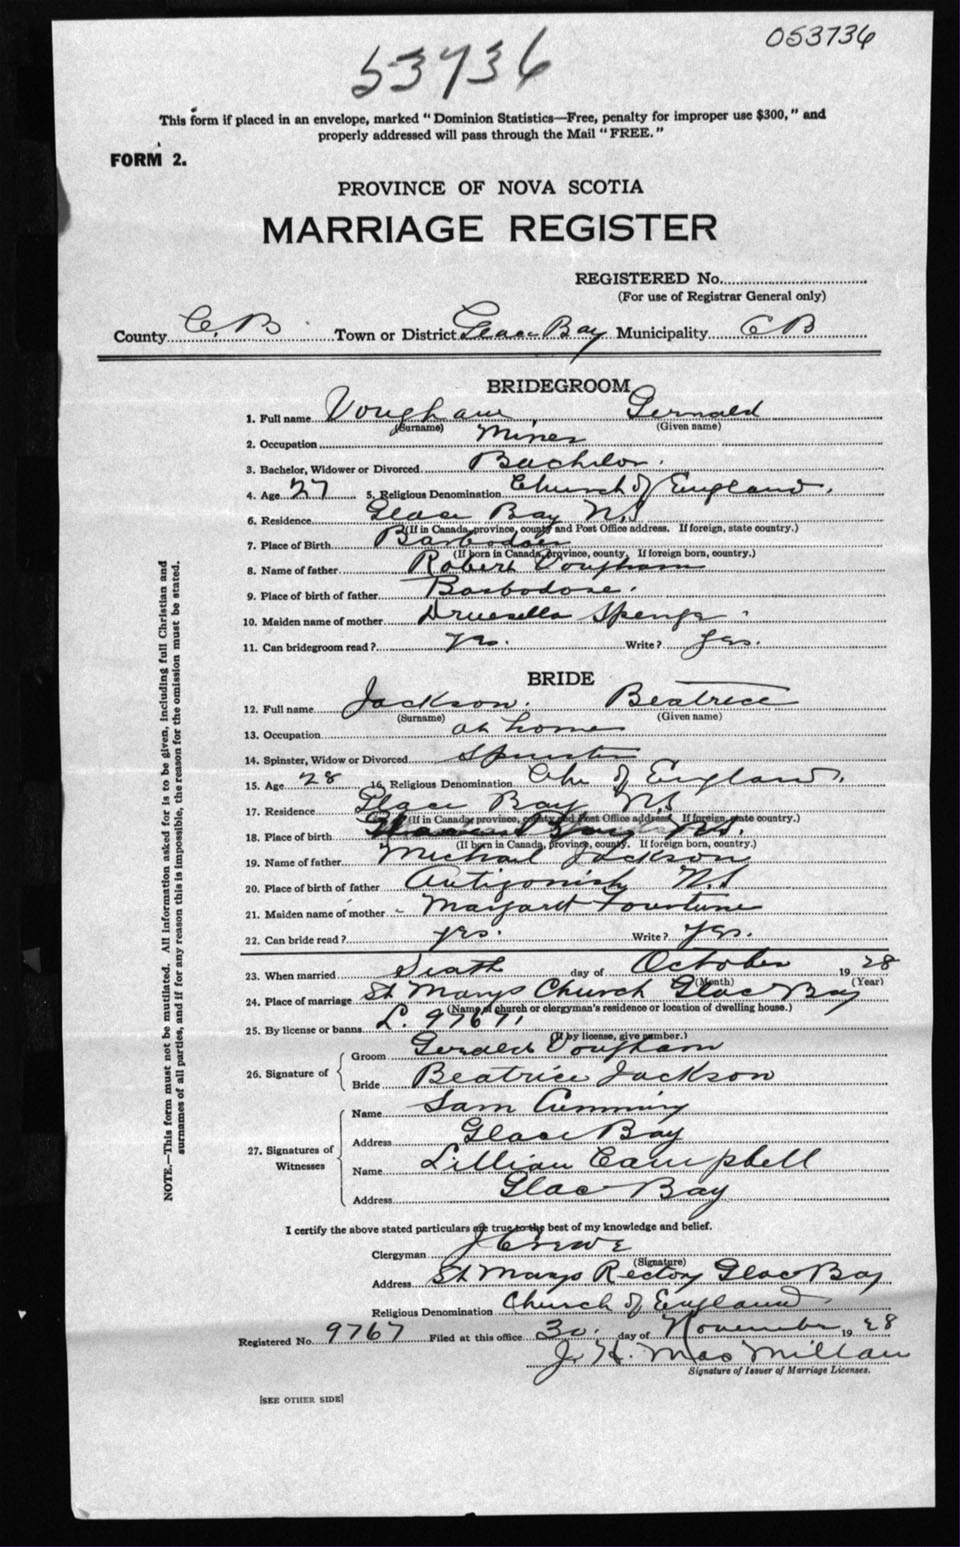 053736
53736
This form if placed in an envelope, marked "Dominion Statistics—Free, penalty for improper use $300," and
properly addressed will pass through the Mail "FREE."
FORM 2.
PROVINCE OF NOVA SCOTIA
MARRIAGE REGISTER
REGISTERED No.
(For use of Registrar General only)
County C. B. Town or District Glace Bay Municipality C B
BRIDEGROOM
1. Full name Vougham Gernald
(Surname) (Given name)
2. Occupation Miner
3. Bachelor, Widower or Divorced Bachelor.
4. Age 27 5. Religious Denomination Church of England.
6. Residence Glace Bay N.S
(If in Canada, province, county and Post Office address. If foreign, state country.)
7. Place of Birth Barbodoes
(If born in Canada, province, county. If foreign born, country.)
8. Name of father Robert Vougham
9. Place of birth of father Barbodose.
10. Maiden name of mother Druesella
11. Can bridegroom read? yes. Write? yes.
BRIDE
12. Full name Jackson. Beatrice
(Surname) (Given name)
13. Occupation at home
14. Spinster, Widow or Divorced Spinster
15. Age 28 16. Religious Denomination Chu of England.
17. Residence Glace Bay N.S
(If in Canada, province, county and Post Office address. If foreign, state country.)
18. Place of birth N.S.
(If born in Canada, province, county. If foreign born, country.)
19. Name of father Michael Jackson
20. Place of birth of father Antigonish N.S
21. Maiden name of mother Margaret Fountune
22. Can bride read? yes. Write? yes.
23. When married day of October 1928
(Month) (Year)
24. Place of marriage St Marys Church Glace Bay
(Name of church or clergyman's residence or location of dwelling house.)
25. By license or banns L. 9767
(If by license, give number.)
26. Signature of Groom Gerald Vougham
Bride Beatrice Jackson
27. Signatures of Witnesses Name Sam Cumming
Address Glace Bay
Name Lillian Campbell
Address Glace Bay
I certify the above stated particulars are true to the best of my knowledge and belief.
Clergyman J Crewe
(Signature)
Address St Marys Rectory Glace Bay
Religious Denomination Church of England
Registered No. 9767 Filed at this office 30. day of November 1928
J. H. MacMillan
Signature of Issuer of Marriage Licenses.
[SEE OTHER SIDE]
NOTE.—This form must not be mutilated. All information asked for is to be given, including full Christian and
surnames of all parties, and if for any reason this is impossible, the reason for the omission must be stated.